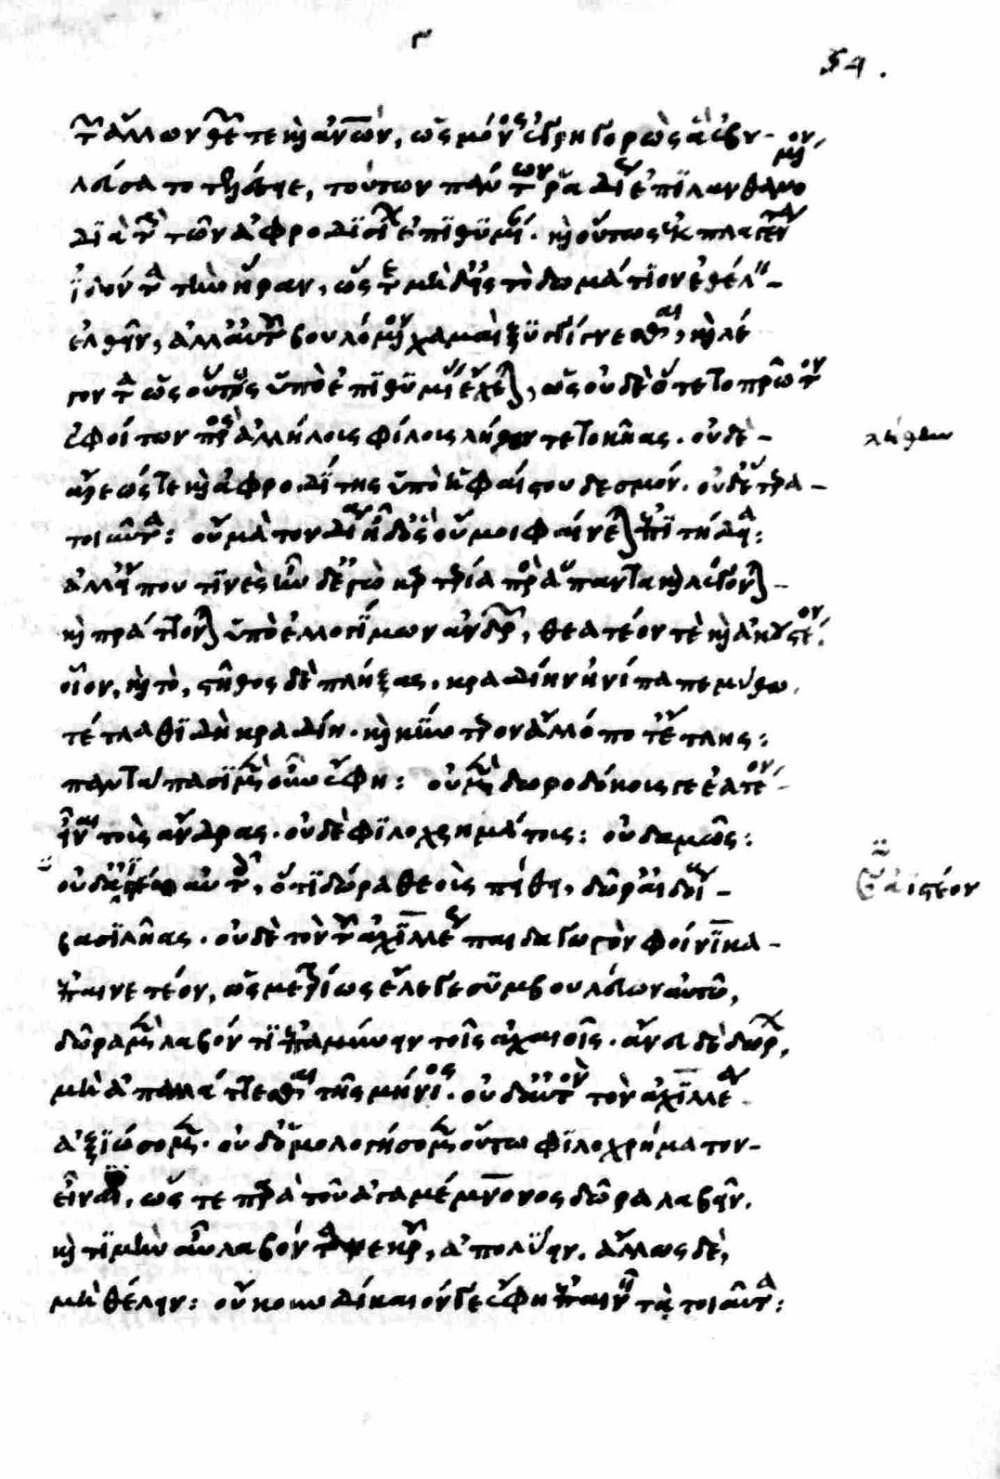 γ
54.
τῶν ἄλλων θεῶν τε καὶ ἀνθρώπων, ὡς μόνος ἐγρηγορὼς ἃ ἐβου-
λεύσατο τούτων πάντων ῥαδίως ἐπιλανθανόμενον
διὰ τὴν τῶν ἀφροδισίων ἐπιθυμίαν. καὶ οὕτως ἐκπλαγέντα
ἰδόντα τὴν ἥραν, ὥστε μηδ' εἰς τὸ δωμάτιον ἐθέλειν
ἐλθεῖν, ἀλλ' αὐτοῦ βουλόμενον χαμαὶ ξυγγίγνεσθαι, καὶ λέ
γοντα ὡς οὕτως ὑπὸ ἐπιθυμίας ἔχεται, ὡς οὐδὲ ὅτε τὸ πρῶτον
ἐφοίτων πρὸς ἀλλήλους φίλους λήθοντε τοκῆας. οὐδὲ
λήθων
ἄρεώς τε καὶ ἀφροδίτης ὑπὸ ἡφαίστου δεσμόν. οὐδ' ἕτερα
τοιαῦτα: οὐ μὰ τὸν δία ἦ δ' ὃς οὔ μοι φαίνεται ἐπιτήδειον:
ἀλλ' εἴ που τινὲς ἦν δ' ἐγὼ καρτερίαι πρὸς ἅπαντα καὶ λέγονται
καὶ πράττονται ὑπὸ ἐλλογίμων ἀνδρῶν, θεατέον τὲ καὶ ἀκουστέον.
οἷον, καὶ τὸ, στῆθος δὲ πλήξας, κραδίην ἠνίπαπε μύθω.
τέτλαθι δὴ κραδίη. καὶ κύντερον ἄλλό ποτ' ἔτλης:
παντάπασι μὲν οὖν ἔφη: οὐ μὲν δὴ δωροδόκους γε ἐατέον
εἶναι τοὺς ἄνδρας. οὐδὲ φιλοχρημάτους: οὐδαμῶς:
οὐδ' αὐτοῖς, ὅτι δῶρα θεοὺς πείθει, δῶρ' αἰδοίους
ᾀστέον
βασιλῆας. οὐδὲ τὸν τοῦ ἀχιλλέως παιδαγωγὸν φοίνικα
ἐπαινετέον, ὡς μετρίως ἔλεγε συμβουλεύων αὐτῶ,
δῶρα μὲν λαβόντι ἐπαμύνειν τοῖς ἀχαιοῖς. ἄνευ δὲ δώρων,
μὴ ἀπαλλάττεσθαι τῆς μήνιος. οὐδ' αὐτὸν τὸν ἀχιλλέα
ἀξιώσομεν. οὐδ' ὁμολογήσομεν οὕτω φιλοχρήματον
εἶναι, ὥστε παρὰ τοῦ ἀγαμέμνονος δῶρα λαβεῖν.
καὶ τιμὴν αὖ λαβόντα νεκροῦ, ἀπολύειν. ἄλλως δὲ,
μὴ θέλειν: οὔκουν δίκαιόν γε ἔφη ἐπαινεῖν τὰ τοιαῦτα: